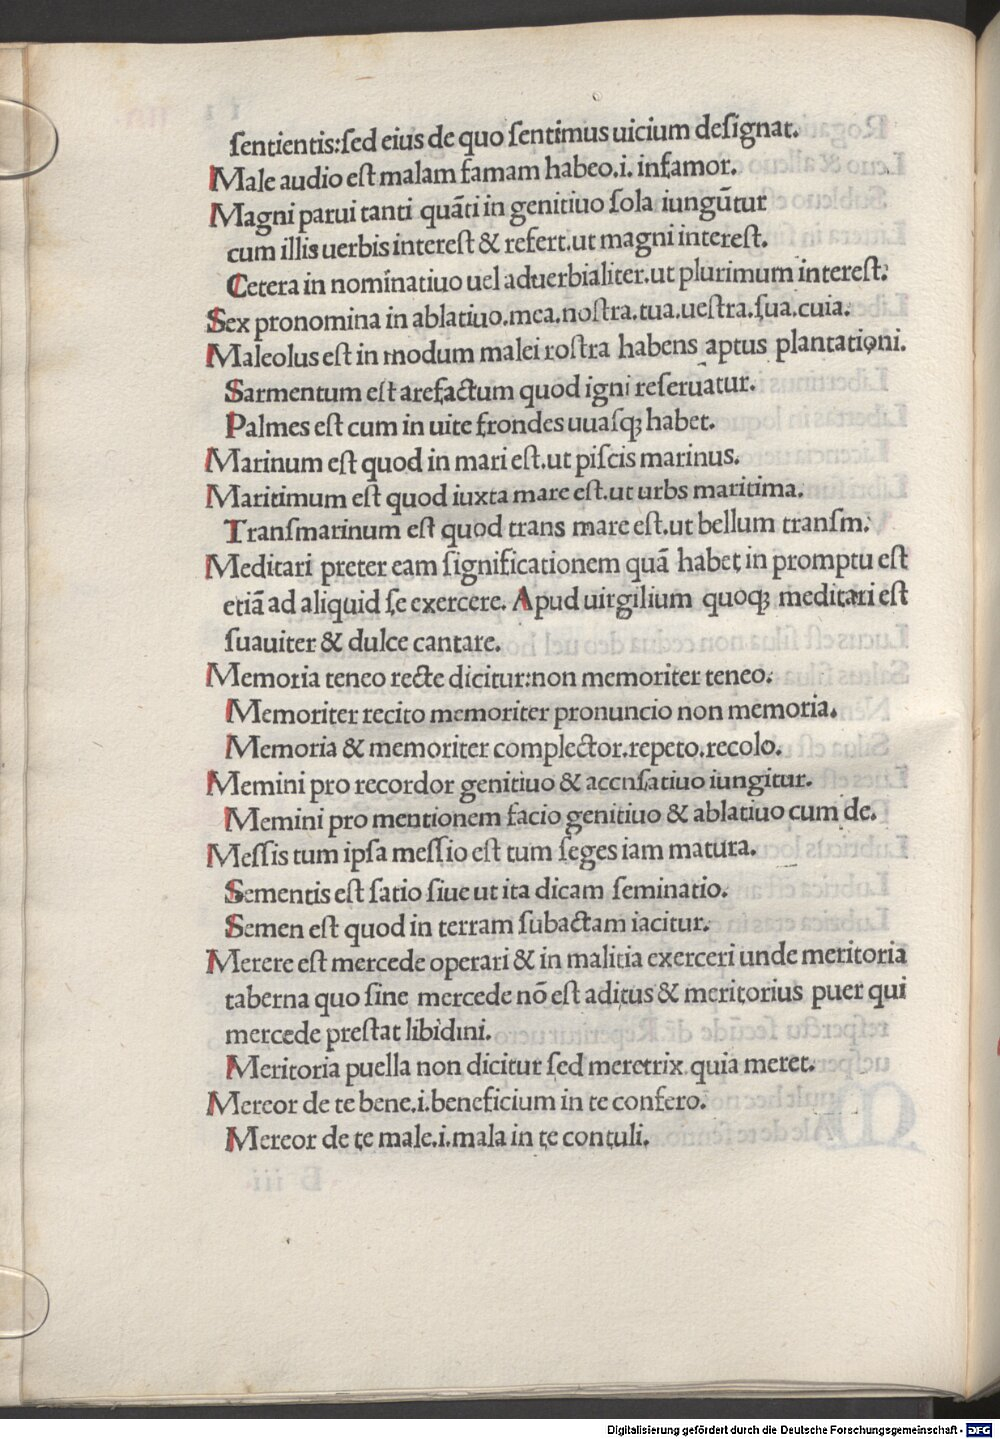 ſentientis:ſed eius de quo ſentimus uicium deſignat.
Male audio eſt malam famam habeo.i. infamor.
Magni parui tanti quāti in genitiuo ſola iungūtur
cum illis uerbis intereſt & refert.ut magni intereſt.
Cetera in nominatiuo uel aduerbialiter.ut plurimum intereſt.
Sex pronomina in ablatiuo.mea.noſtra.tua.ueſtra.ſua.cuia.
Maleolus eſt in modum malei roſtra habens aptus plantationi.
Sarmentum eſt arefactum quod igni reſeruatur.
Palmes eſt cum in uite frondes uuaſqꝫ habet.
Marinum eſt quod in mari eſt.ut piſcis marinus.
Maritimum eſt quod iuxta mare eſt.ut urbs maritima.
Tranſmarinum eſt quod trans mare eſt.ut bellum tranſm.
Meditari preter eam ſignificationem quā habet in promptu eſt
etiā ad aliquid ſe exercere. Apud uirgilium quoqꝫ meditari eſt
ſuauiter & dulce cantare.
Memoria teneo recte dicitur:non memoriter teneo.
Memoriter recito memoriter pronuncio non memoria.
Memoria & memoriter complector.repeto.recolo.
Memini pro recordor genitiuo & accnſatiuo iungitur.
Memini pro mentionem facio genitiuo & ablatiuo cum de.
Meſſis tum ipſa meſſio eſt tum ſeges iam matura.
Sementis eſt ſatio ſiue ut ita dicam ſeminatio.
Semen eſt quod in terram ſubactam iacitur.
Merere eſt mercede operari & in malitia exerceri unde meritoria
taberna quo ſine mercede nō eſt aditus & meritorius puer qui
mercede preſtat libidini.
Meritoria puella non dicitur ſed meretrix quia meret.
Mereor de te bene.i.beneficium in te confero.
Mereor de te male.i.mala in te contuli.
Digitalisierung gefördert durch die Deutsche Forschungsgemeinschaft - DFG